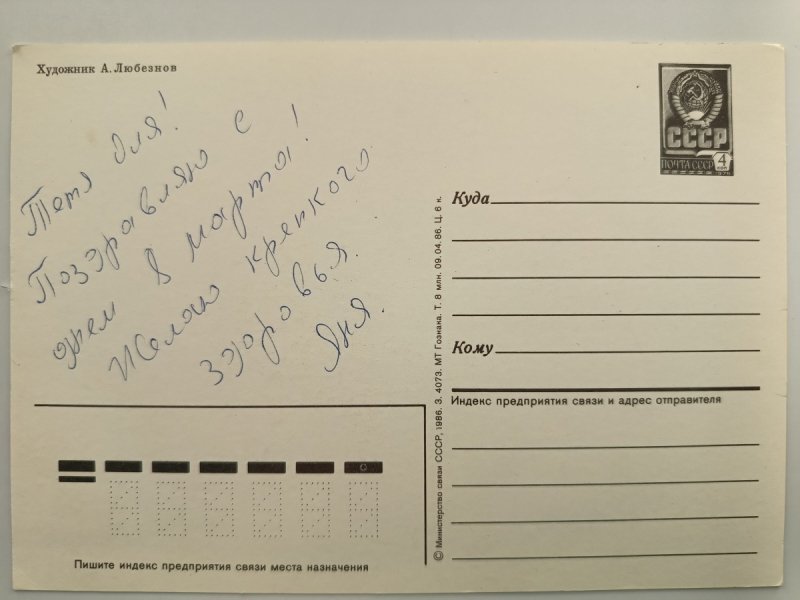 Художник А. Любезнов
Тетя Оля!
Поздравляю с
днем 8 марта!
Желаю крепкого
здоровья.
Яна.
СССР
ПОЧТА СССР
4
КОП
Куда
Кому
Индекс предприятия связи и адрес отправителя
© Министерство связи СССР, 1986. З. 4073. МТ Гознака. Т. 8 млн. 09.04.86. Ц. 6 к.
Пишите индекс предприятия связи места назначения